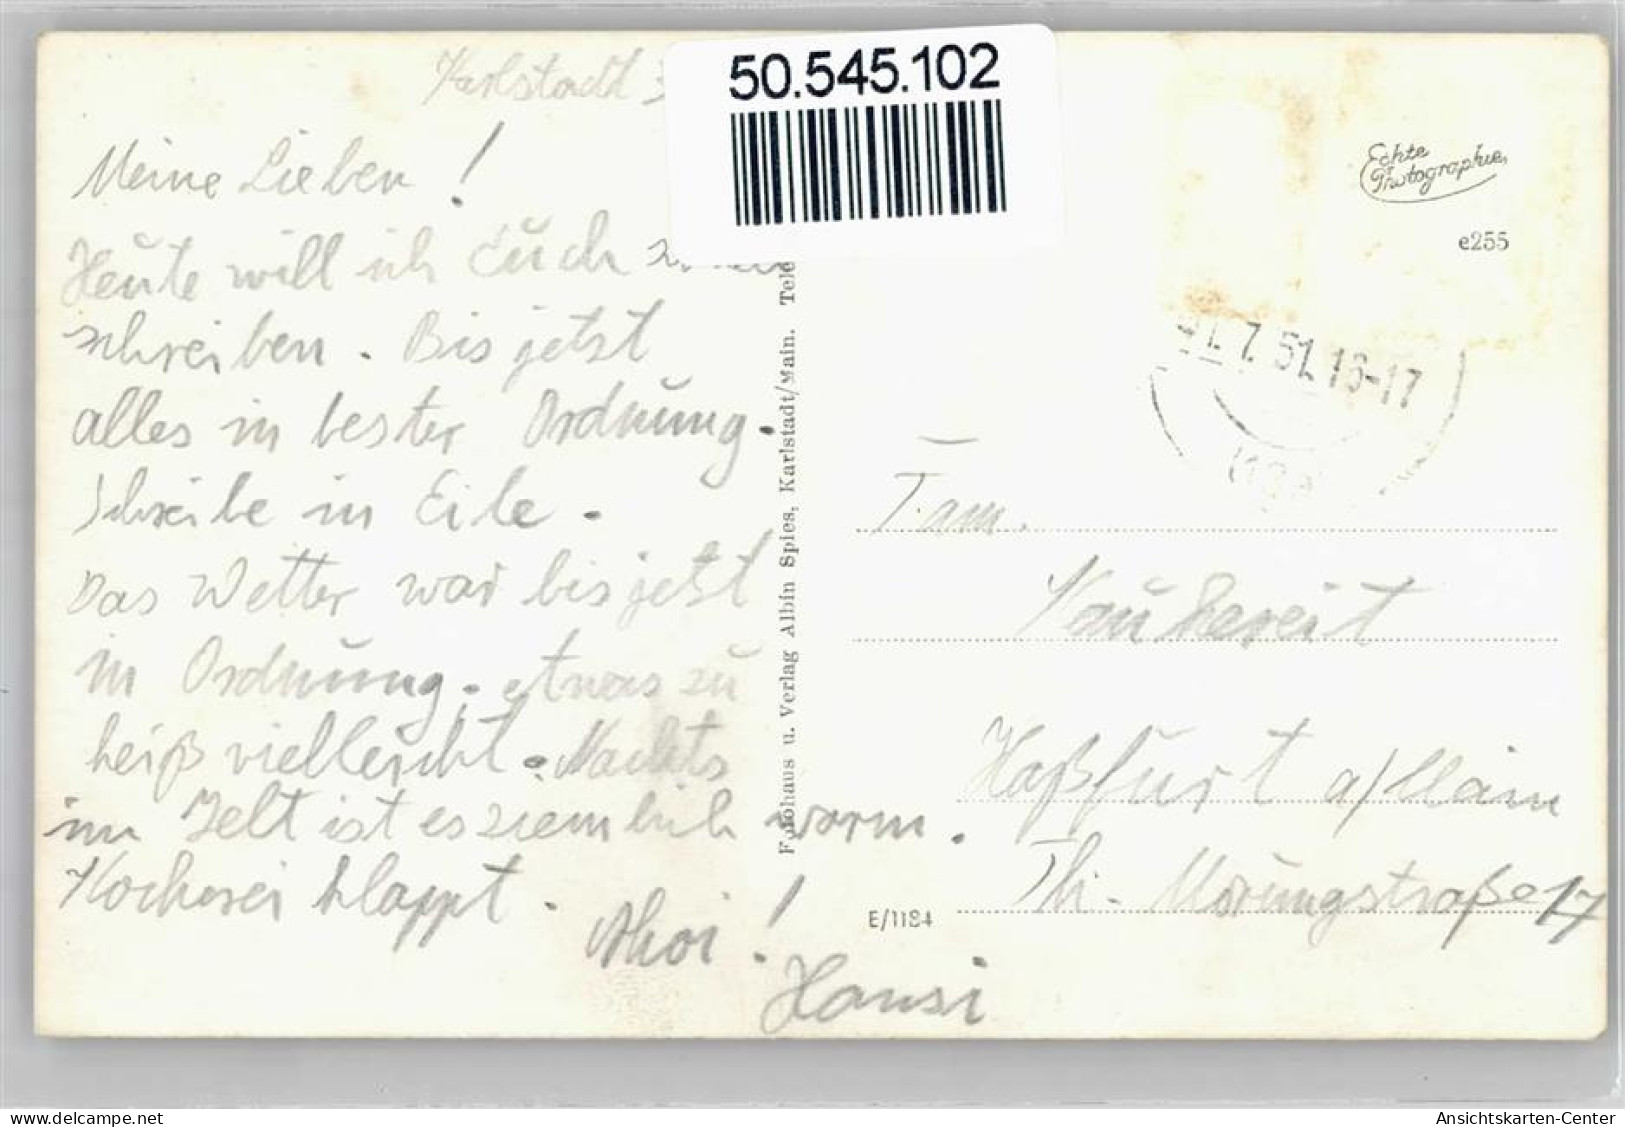 Karlstadt
50.545.102
Meine Lieben!
Heute will ich Euch
schreiben. Bis jetzt
alles in bester Ordnung.
Schreibe in Eile.
Das Wetter war bis jetzt
in Ordnung. etwas zu
heiß vielleicht. Nachts
im Zelt ist es ziemlich warm.
Kocherei klappt.
Ahoi!
Hansi
Fotohaus u. Verlag Albin Spies, Karlstadt/Main.
Echte
Photographie
e255
7.51.16-17
Fam.
Haßfurt a/Main
Th. Morungstraße 17
E/1184
delcampe.net
Ansichtskarten-Center